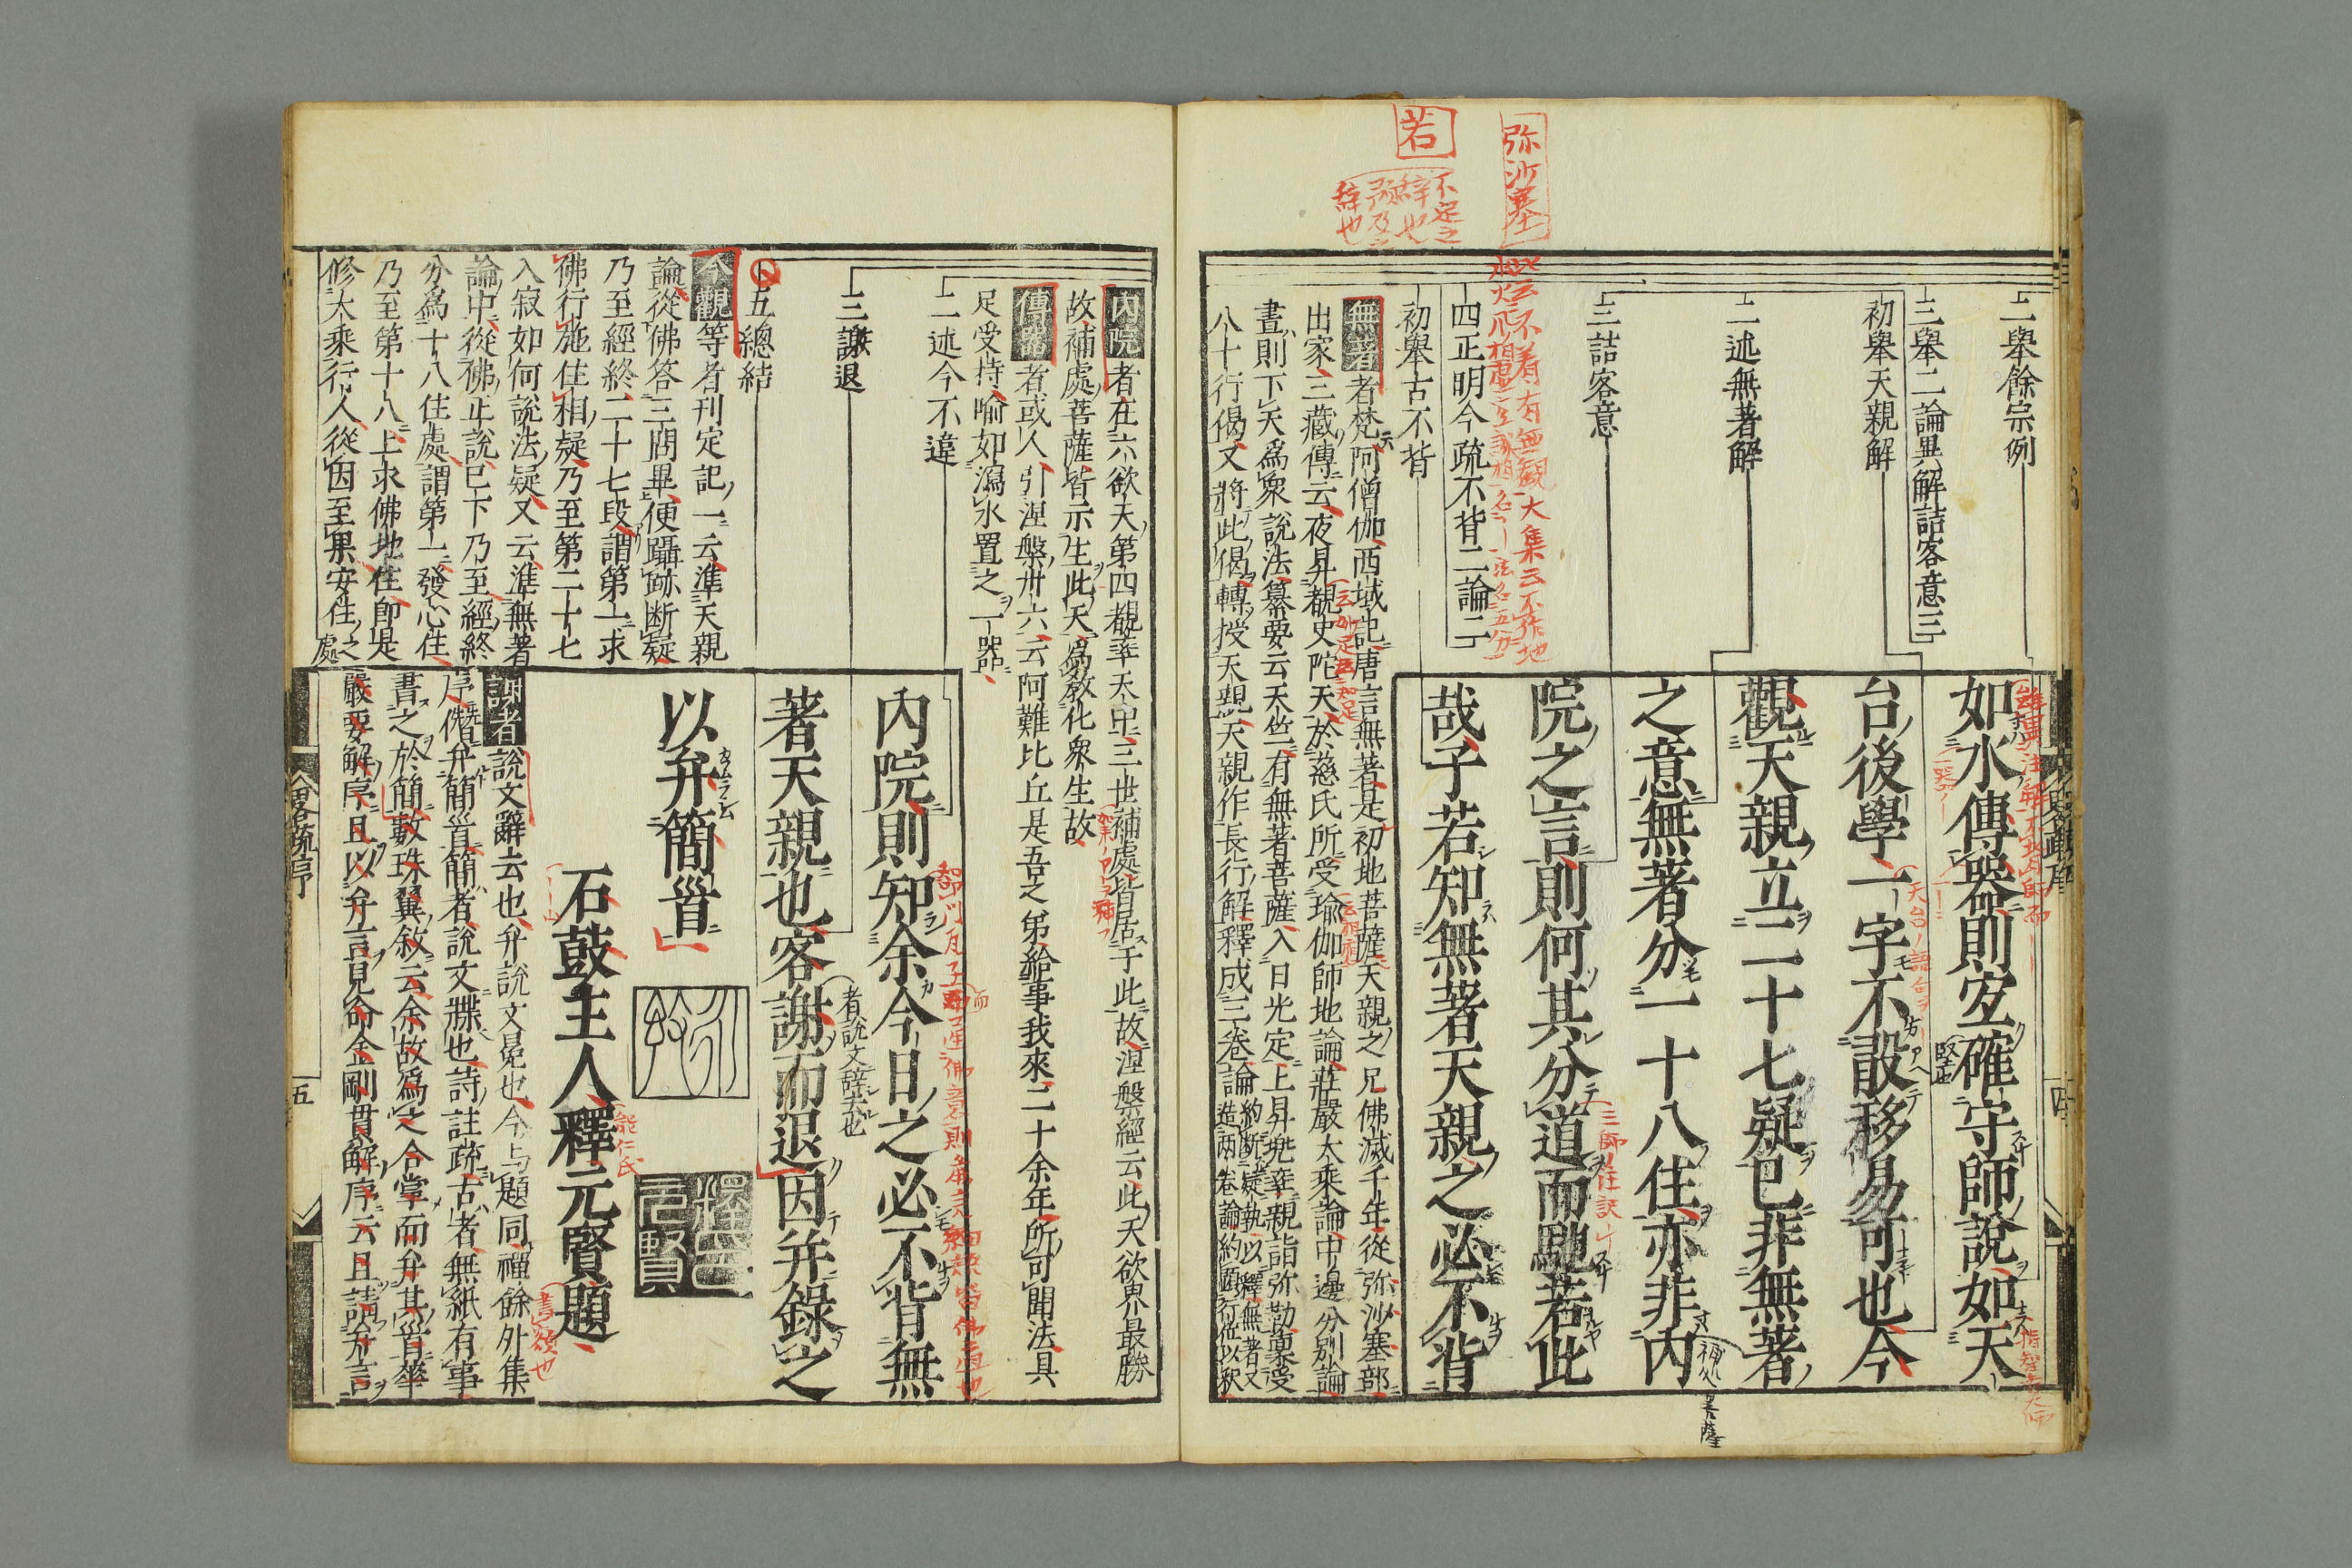 二擧餘宗例
三擧二論異解詰客意三
初擧天親解
二述無著解
三詰客意
四正明今疏不背二論二
初擧古不背
如水傳器則宜確守師說如天
台後學一字不敢移易可也今
觀天親立二十七疑已非無著
之意無著分一十八住亦非內
院之言則何其分道而馳若此
哉予若知無著天親之必不背
無著者梵阿僧伽西域記唐言無著是初地菩薩天親之兄佛滅千年從弥沙塞部
出家三藏傳云夜昇覩史陀天於慈氏所受瑜伽師地論莊嚴大乘論中邊分別論
晝則下天爲衆說法纂要云天竺有無著菩薩入日光定上昇兜率親詣弥勒稟受
八十行偈又將此偈轉授天親天親作長行解釋成三卷論
約斷疑執以釋無著又
造兩卷論約顯行位以釈
弥沙塞
若
四
內院者在六欲天第四覩率天中三世補處皆居于此故涅槃經云此天欲界最勝
故補處菩薩皆示生此天爲敎化衆生故
傳器者或人引涅槃卅六云阿難比丘是吾之弟給事我來二十余年所可聞法具
足受持喻如瀉水置之一器
二述今不違
三謝退
五總結
內院則知余今日之必不背無
著天親也客謝而退因并錄之
以弁簡首
石鼓主人釋元賢題
今觀等者刊定記一云準天親
論從佛答三問畢便躡跡断疑
乃至經終二十七段謂第一求
佛行施住相疑乃至第二十七
入寂如何說法疑又云準無著
論中從佛正說已下乃至經終
分爲十八住處謂第一發心住
乃至第十八上求佛地住即是
修大乘行人從因至果安住之
處
謝者說文辭去也弁說文冕也今与題同禪餘外集
序僭弁簡首簡者說文牒也詩註疏古者無紙有事
書之於簡數珠翼敘云余故爲之合掌而弁其首華
嚴要解序且以弁言見命金剛貫解序云且請弁言
略疏序
五